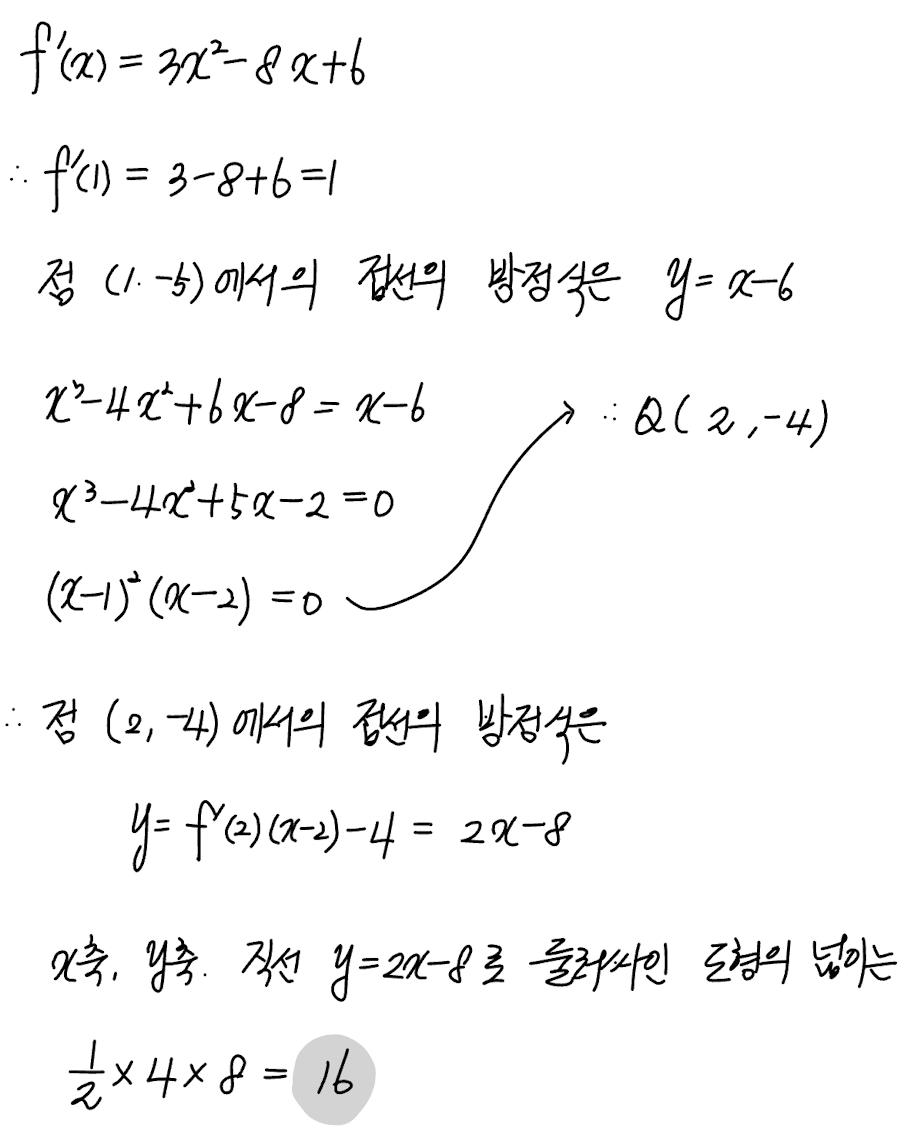 f'(x) = 3x² - 8x + 6
∴ f'(1) = 3 - 8 + 6 = 1
점 (1, -5)에서의 접선의 방정식은 y = x - 6
x³ - 4x² + 6x - 8 = x - 6
∴ Q(2, -4)
x³ - 4x² + 5x - 2 = 0
(x-1)²(x-2) = 0
∴ 점 (2, -4)에서의 접선의 방정식은
y = f'(2)(x-2) - 4 = 2x - 8
x축, y축, 직선 y = 2x - 8로 둘러싸인 도형의 넓이는
1/2 × 4 × 8 = 16